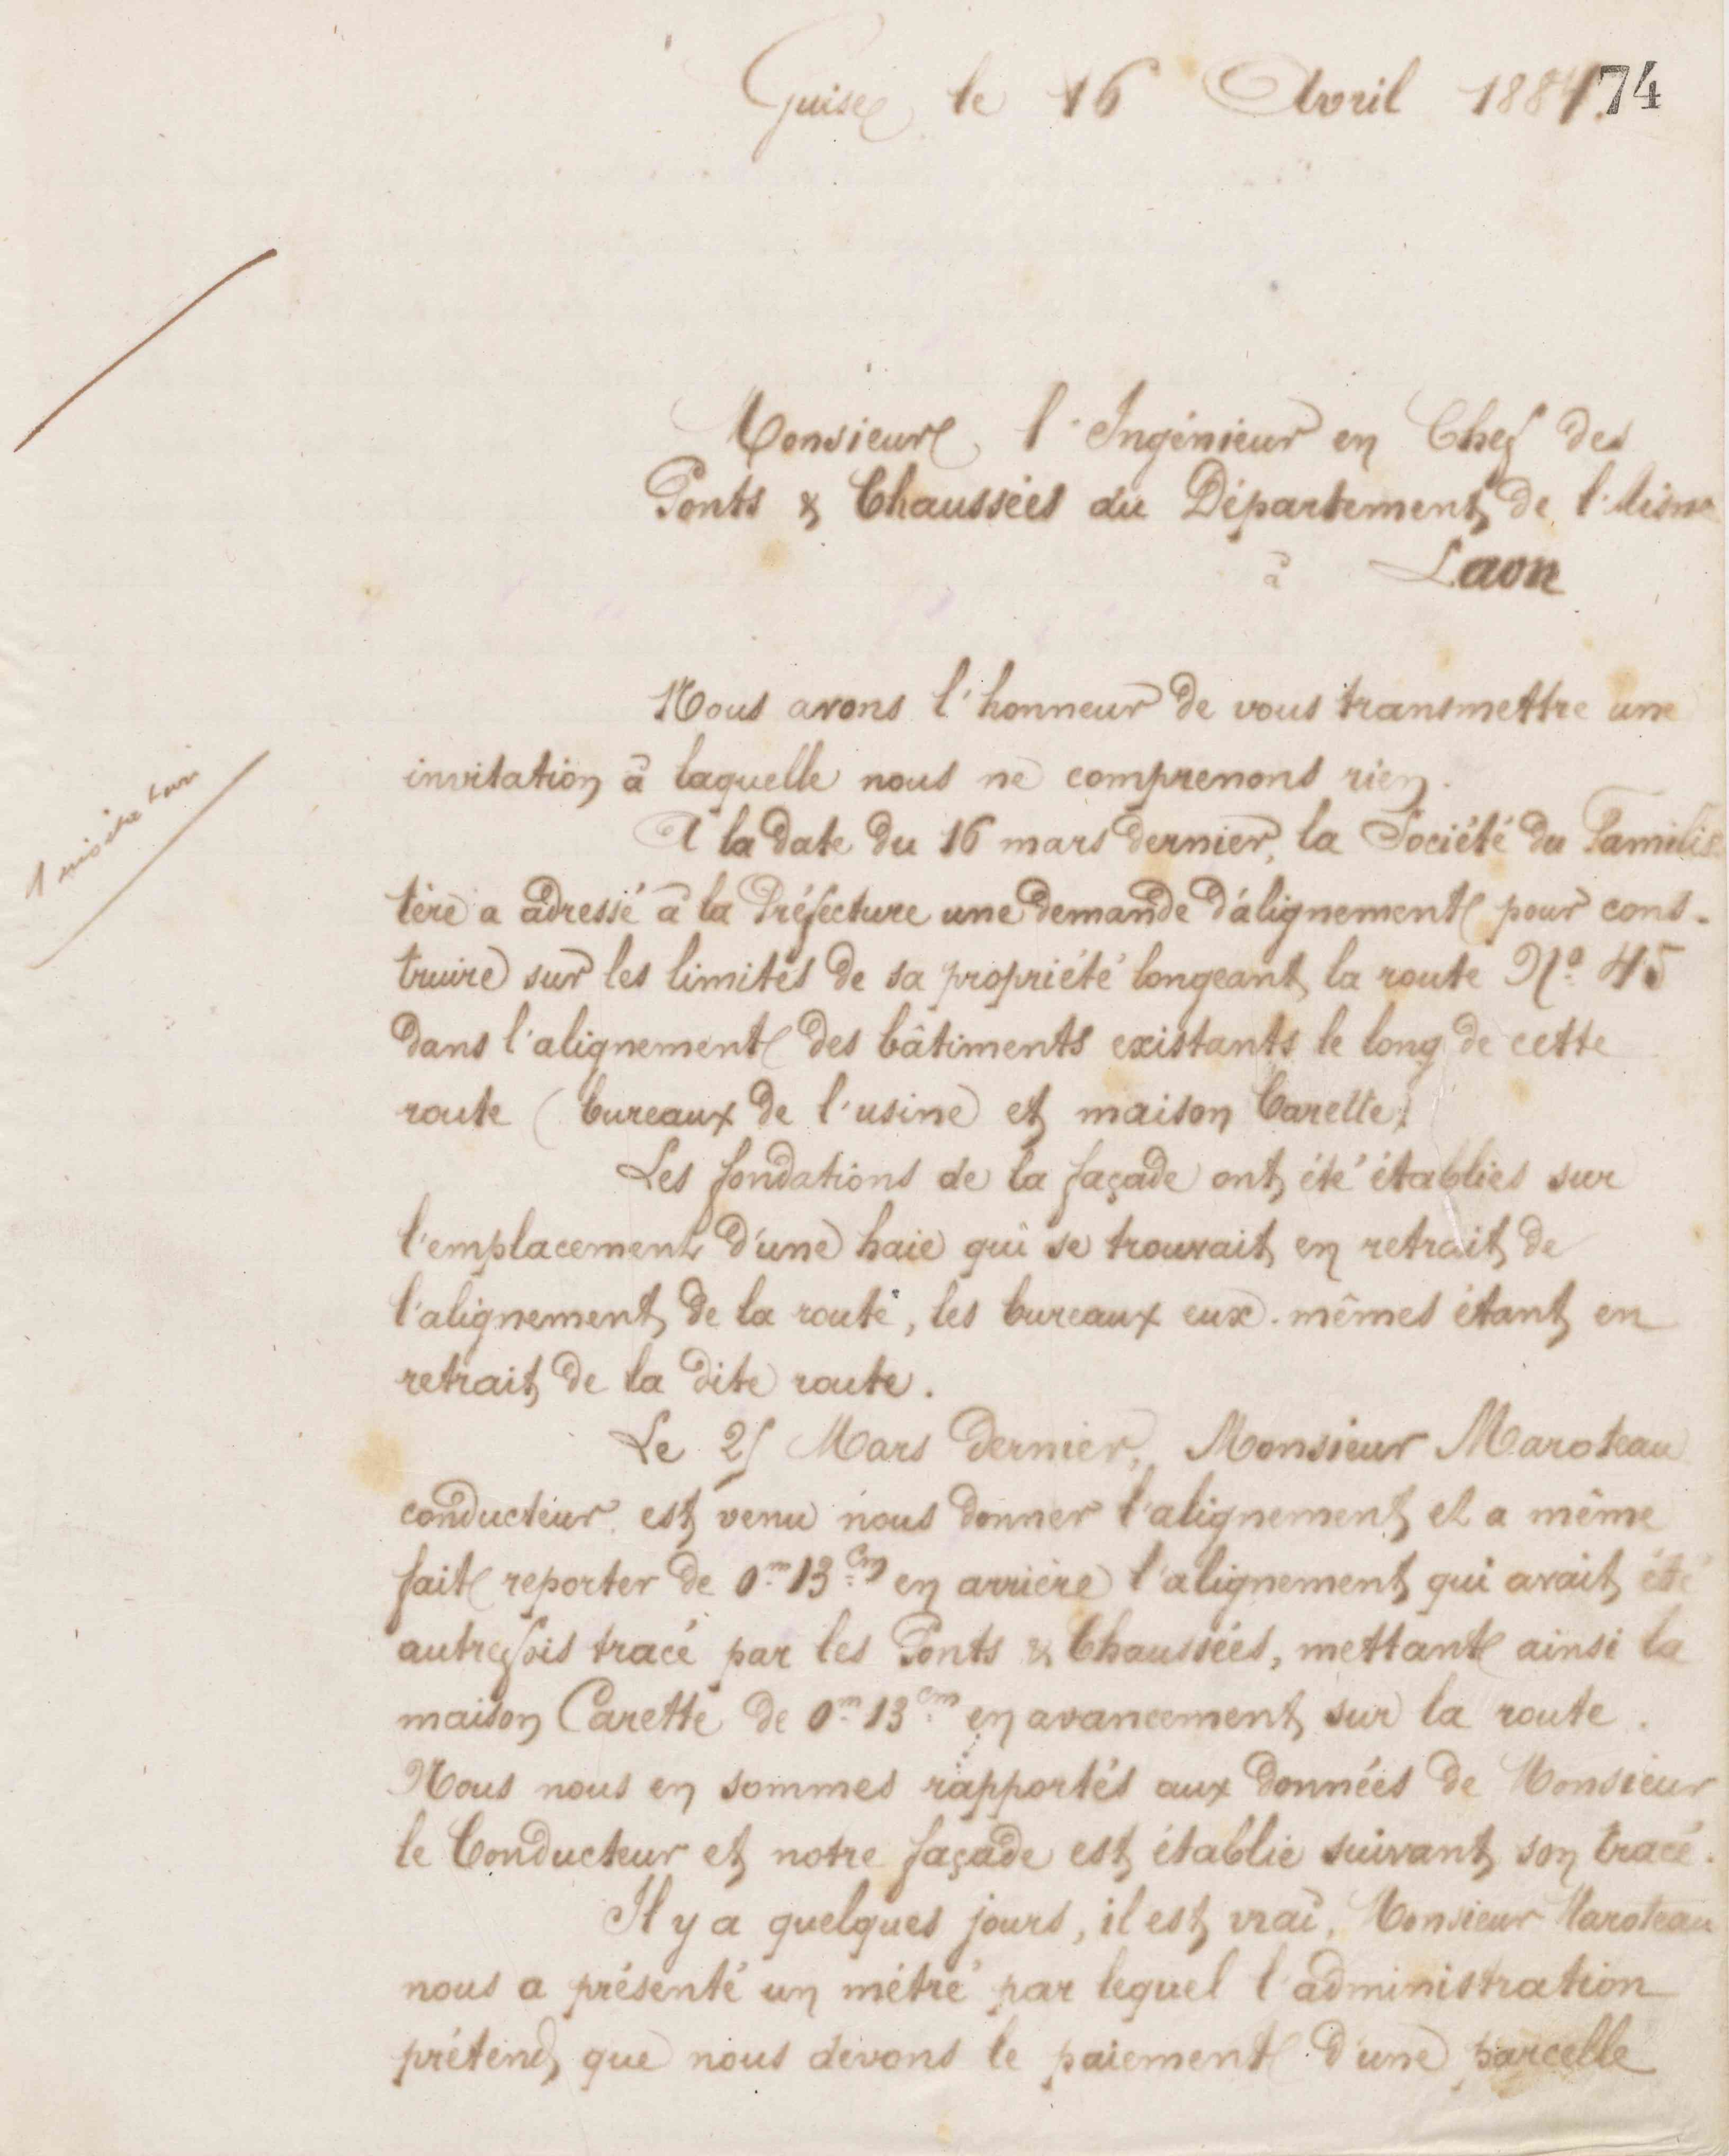 Guise le 16 Avril 188 74
Monsieur l'Ingénieur en Chef des
Ponts & Chaussées du Département de l'Aisne
à Laon
Nous avons l'honneur de vous transmettre une
invitation à laquelle nous ne comprenons rien.
A la date du 16 mars dernier, la Société du Familis
tère a adressé à la Préfecture une demande d'alignement pour cons-
truire sur les limites de sa propriété longeant la route No. 45
dans l'alignement des bâtiments existants le long de cette
route (bureaux de l'usine et maison Carette)
Les fondations de la façade ont été établies sur
l'emplacement d'une haie qui se trouvait en retrait de
l'alignement de la route, les bureaux eux-mêmes étant en
retrait de la dite route.
Le Mars dernier, Monsieur Maroteau
conducteur est venu nous donner l'alignement et a même
fait reporter de 0m 13cm en arrière l'alignement qui avait été
autrefois tracé par les Ponts & Chaussées, mettant ainsi la
maison Carette de 0m 13cm en avancement sur la route.
Nous nous en sommes rapportés aux données de Monsieur
le Conducteur et notre façade est établie suivant son tracé.
Il y a quelques jours, il est vrai, Monsieur Maroteau
nous a présenté un métré par lequel l'administration
prétend que nous devons le paiement d'une parcelle